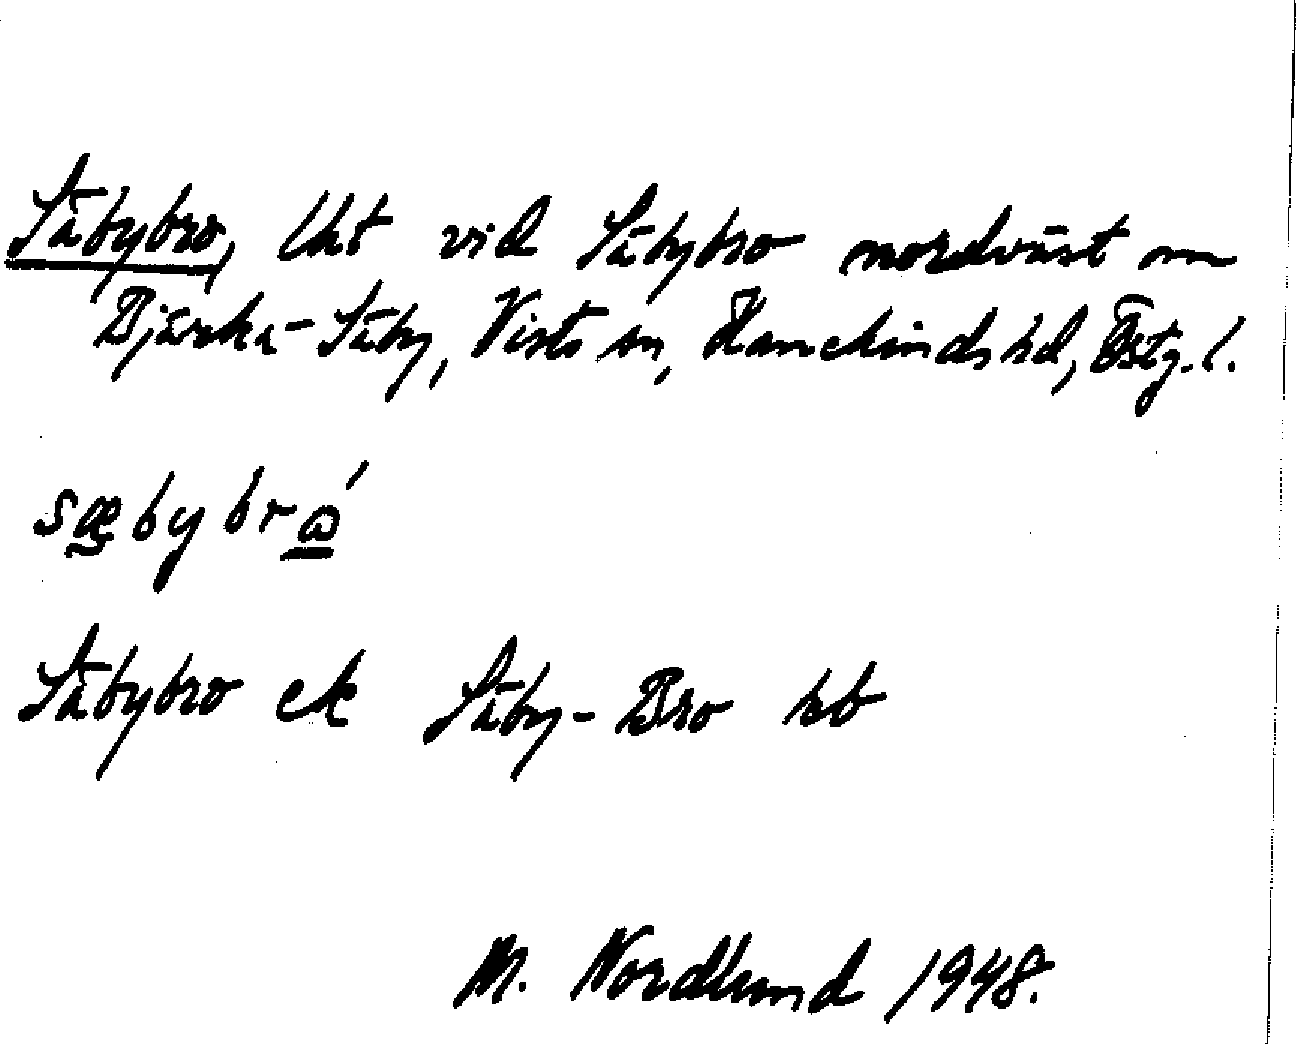 Säbybro, Uht vid Säbybro nordväst om
Bjärka-Säby, Vists sn, Hanekinds hd, Östg. l.
sæbybrω´
Säbybro ek Säby-Bro hb
M. Nordlund 1948.